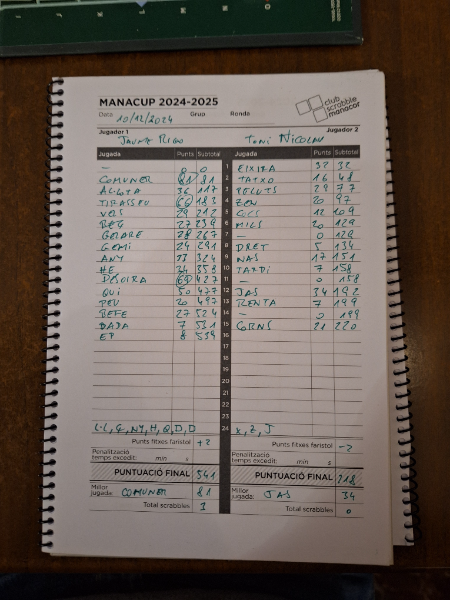 MANACUP 2024-2025
club scrabble manacor
Data 10/12/2024 Grup Ronda
Jugador 1 Jugador 2
JAUME RIGO TONI NICOLAU
Jugada Punts Subtotal Jugada Punts Subtotal
- 0 0 1 EIXIRA 32 32
COMUNER 81 81 2 TATXO 16 48
36 117 3 PELUTS 29 77
66 183 4 20 97
VOIS 29 212 5 12 109
BEG 27 239 6 MICS 20 129
28 267 7 - 0 129
GEMI 24 291 8 DRET 5 134
ANY 33 324 9 NAS 17 151
HE 34 358 10 TARDI 7 158
69 427 11 - 0 158
QUI 50 477 12 JAS 34 192
PEU 20 497 13 RENTA 7 199
REFE 27 524 14 - 0 199
BABA 7 531 15 CORNS 21 220
EP 8 539 16
17
18
19
20
21
22
23
L·L, Ç, NY, H, Q, D, D 24 X, Z, J
Punts fitxes faristol +2 Punts fitxes faristol -2
Penalització temps excedit: min s Penalització temps excedit: min s
PUNTUACIÓ FINAL 541 PUNTUACIÓ FINAL 218
Millor jugada: COMUNER 81 Millor jugada: JAS 34
Total scrabbles 1 Total scrabbles 0